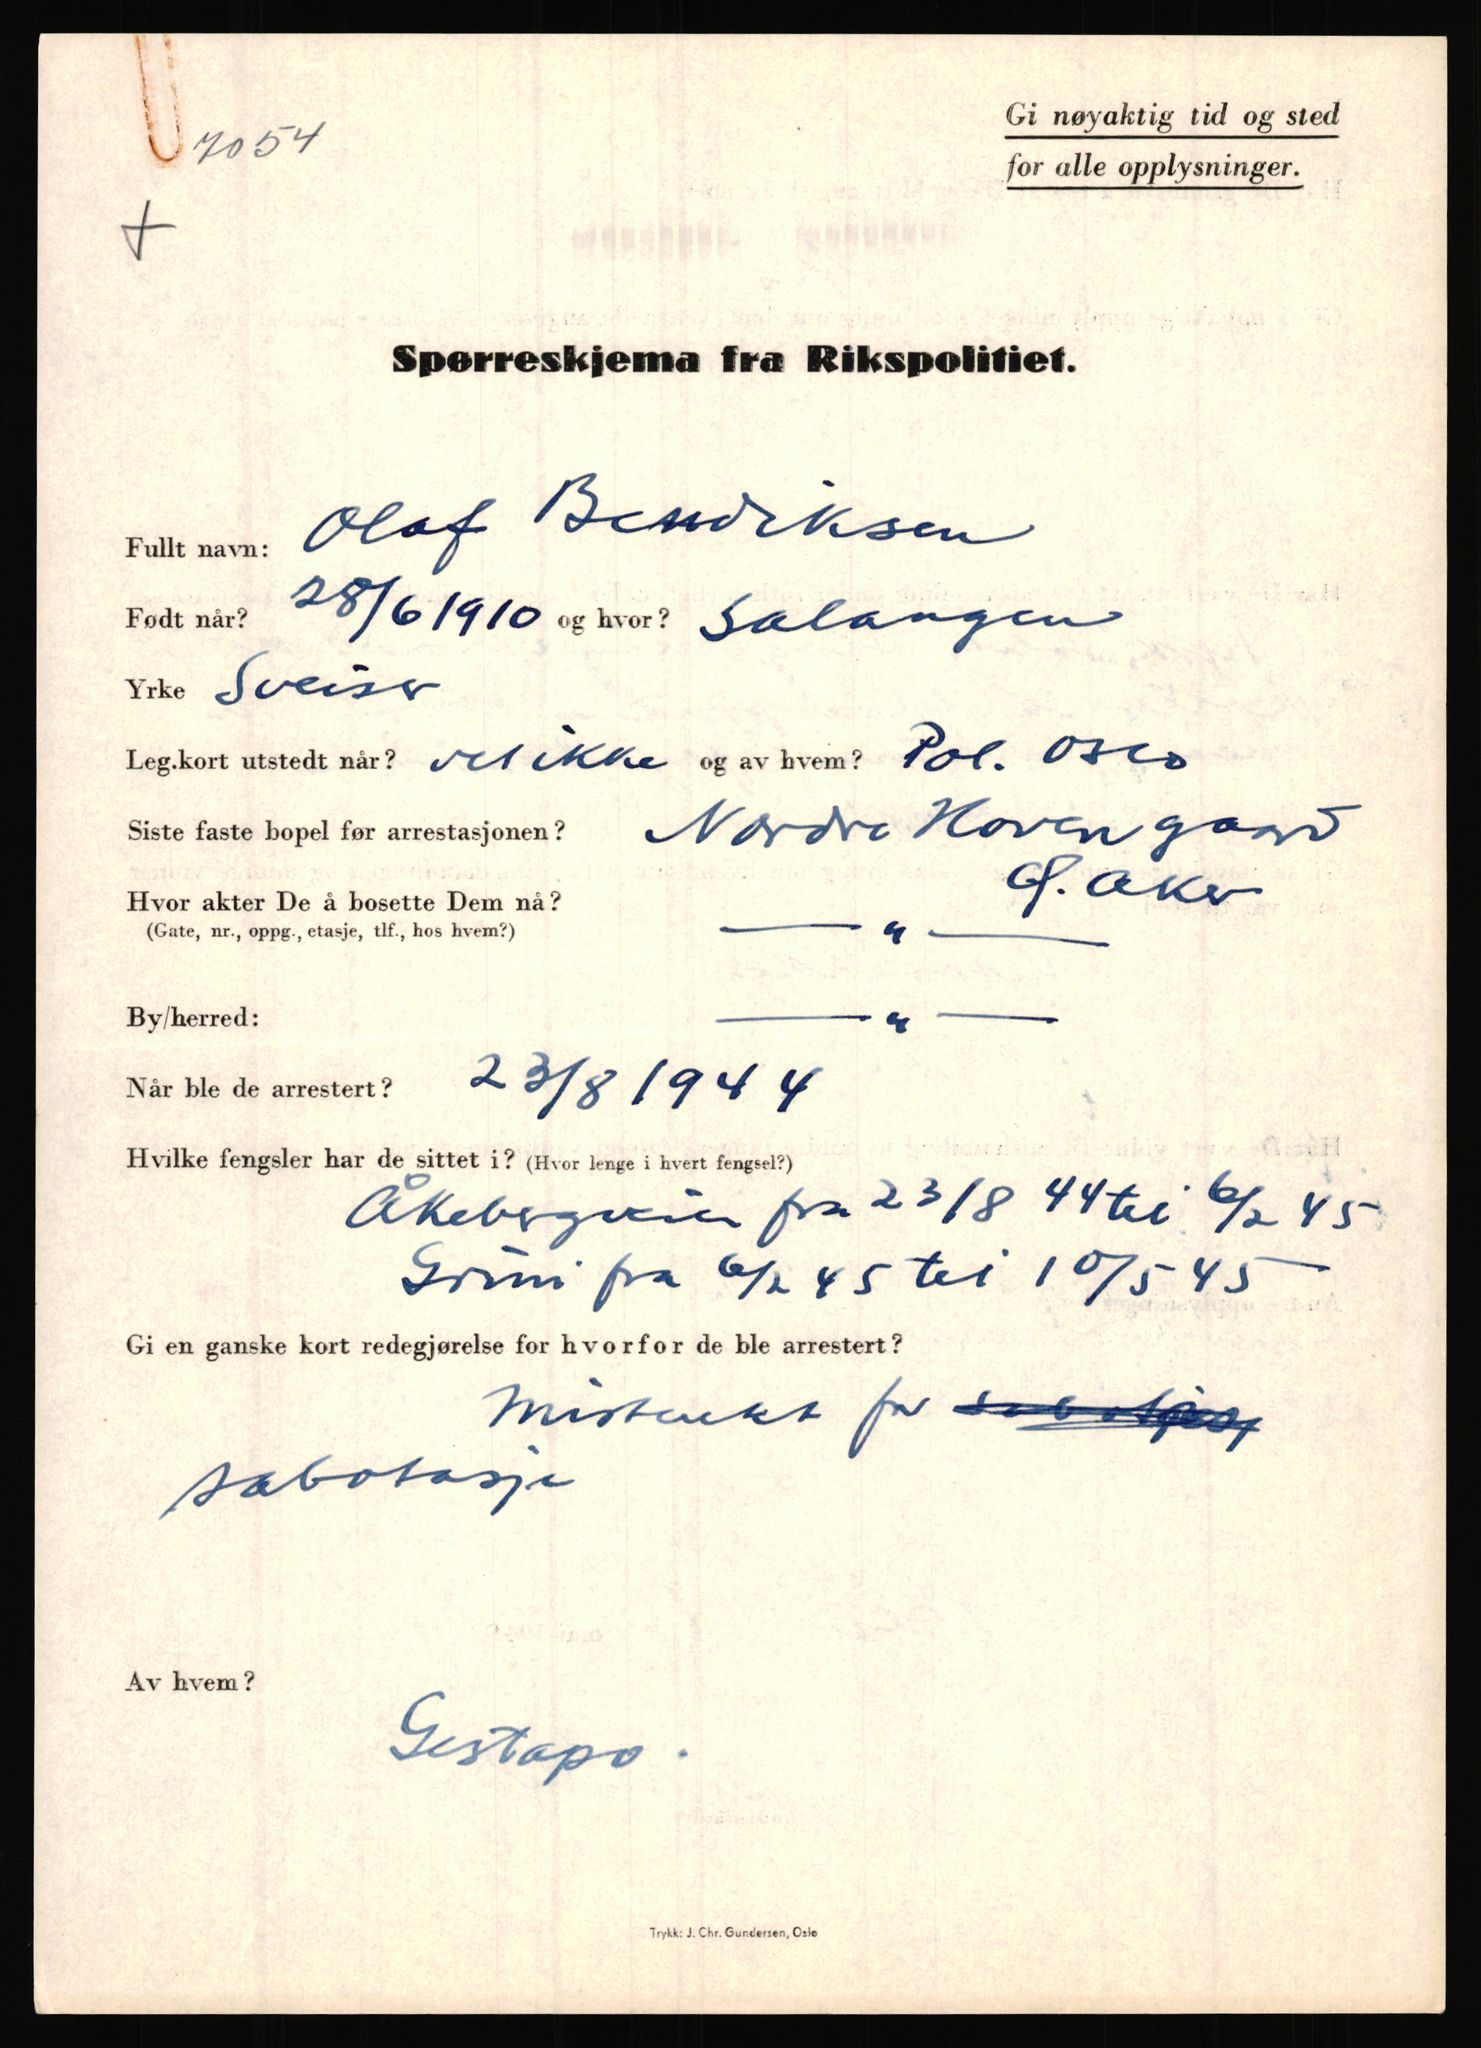 7054
Gi nøyaktig tid og sted
for alle opplysninger.
Spørreskjema fra Rikspolitiet.
Fullt navn: Olaf Bendriksen
Født når? 28/6 1910 og hvor? Salangen
Yrke Sveiser
Leg.kort utstedt når? vet ikke og av hvem? Pol. Oslo
Siste faste bopel før arrestasjonen? Nordre Hoven gaard
Ø. Aker
Hvor akter De å bosette Dem nå? — " —
(Gate, nr., oppg., etasje, tlf., hos hvem?)
By/herred: — " —
Når ble de arrestert? 23/8 1944
Hvilke fengsler har de sittet i? (Hvor lenge i hvert fengsel?)
Åkebergveien fra 23/8 44 til 6/2 45
Grini fra 6/2 45 til 10/5 45
Gi en ganske kort redegjørelse for hvorfor de ble arrestert?
Mistenkt for
sabotasje
Av hvem?
Gestapo.
Trykk: J. Chr. Gundersen, Oslo